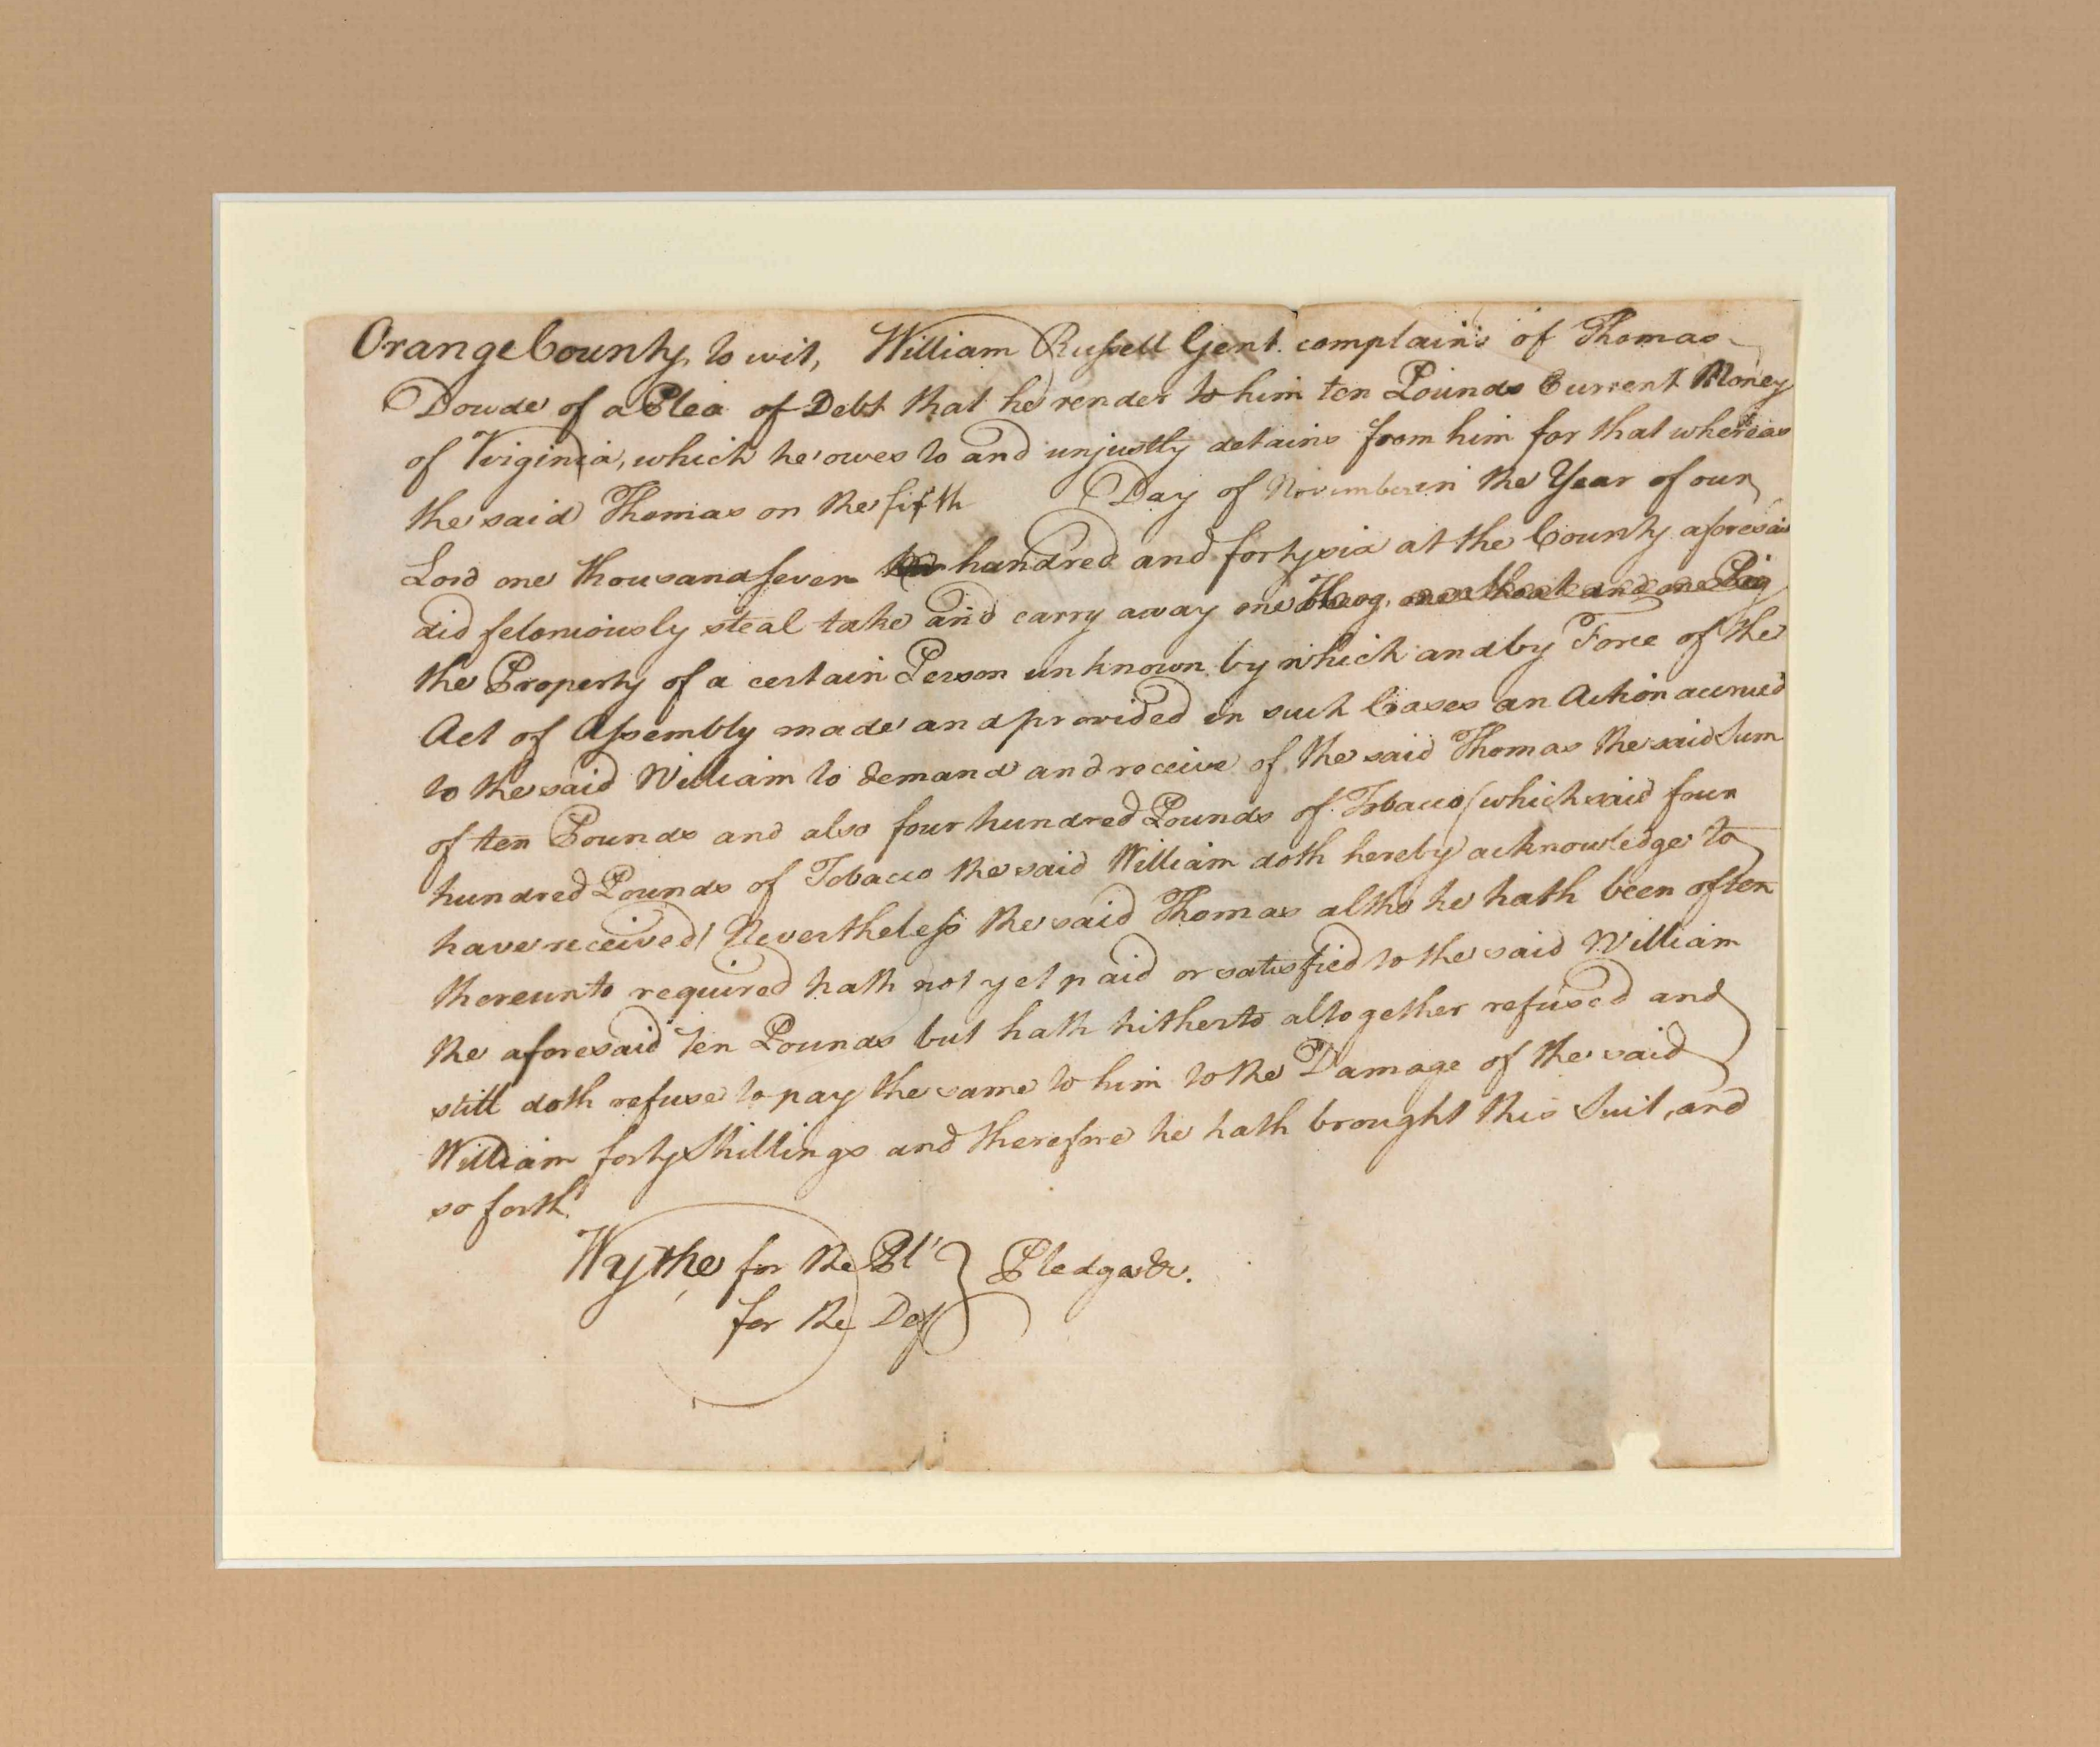 Orange County, to wit, William Russell Gent. complains of Thomas
Dowde of a Plea of Debt that he render to him ten Pounds Current Money
of Virginia, which he owes to and unjustly detains from him for that whereas
the said Thomas on the fifth Day of November in the Year of our
Lord one thousand seven hundred and forty six at the County aforesaid
did feloniously steal take and carry away one Hog, one Shoat and one Pig
the Property of a certain Person unknown by which and by Force of the
Act of Assembly made and provided in such Cases an Action accrued
to the said William to demand and receive of the said Thomas the said Sum
of ten Pounds and also four hundred Pounds of Tobacco (which said four
hundred Pounds of Tobacco the said William doth hereby acknowledge to
have received) Nevertheless the said Thomas altho he hath been often
thereunto required hath not yet paid or satisfied to the said William
the aforesaid ten Pounds but hath hitherto altogether refused and
still doth refuse to pay the same to him to the Damage of the said
William forty Shillings and therefore he hath brought this Suit, and
so forth.
Wythe for the Pl' } Pledges &c.
for the Def